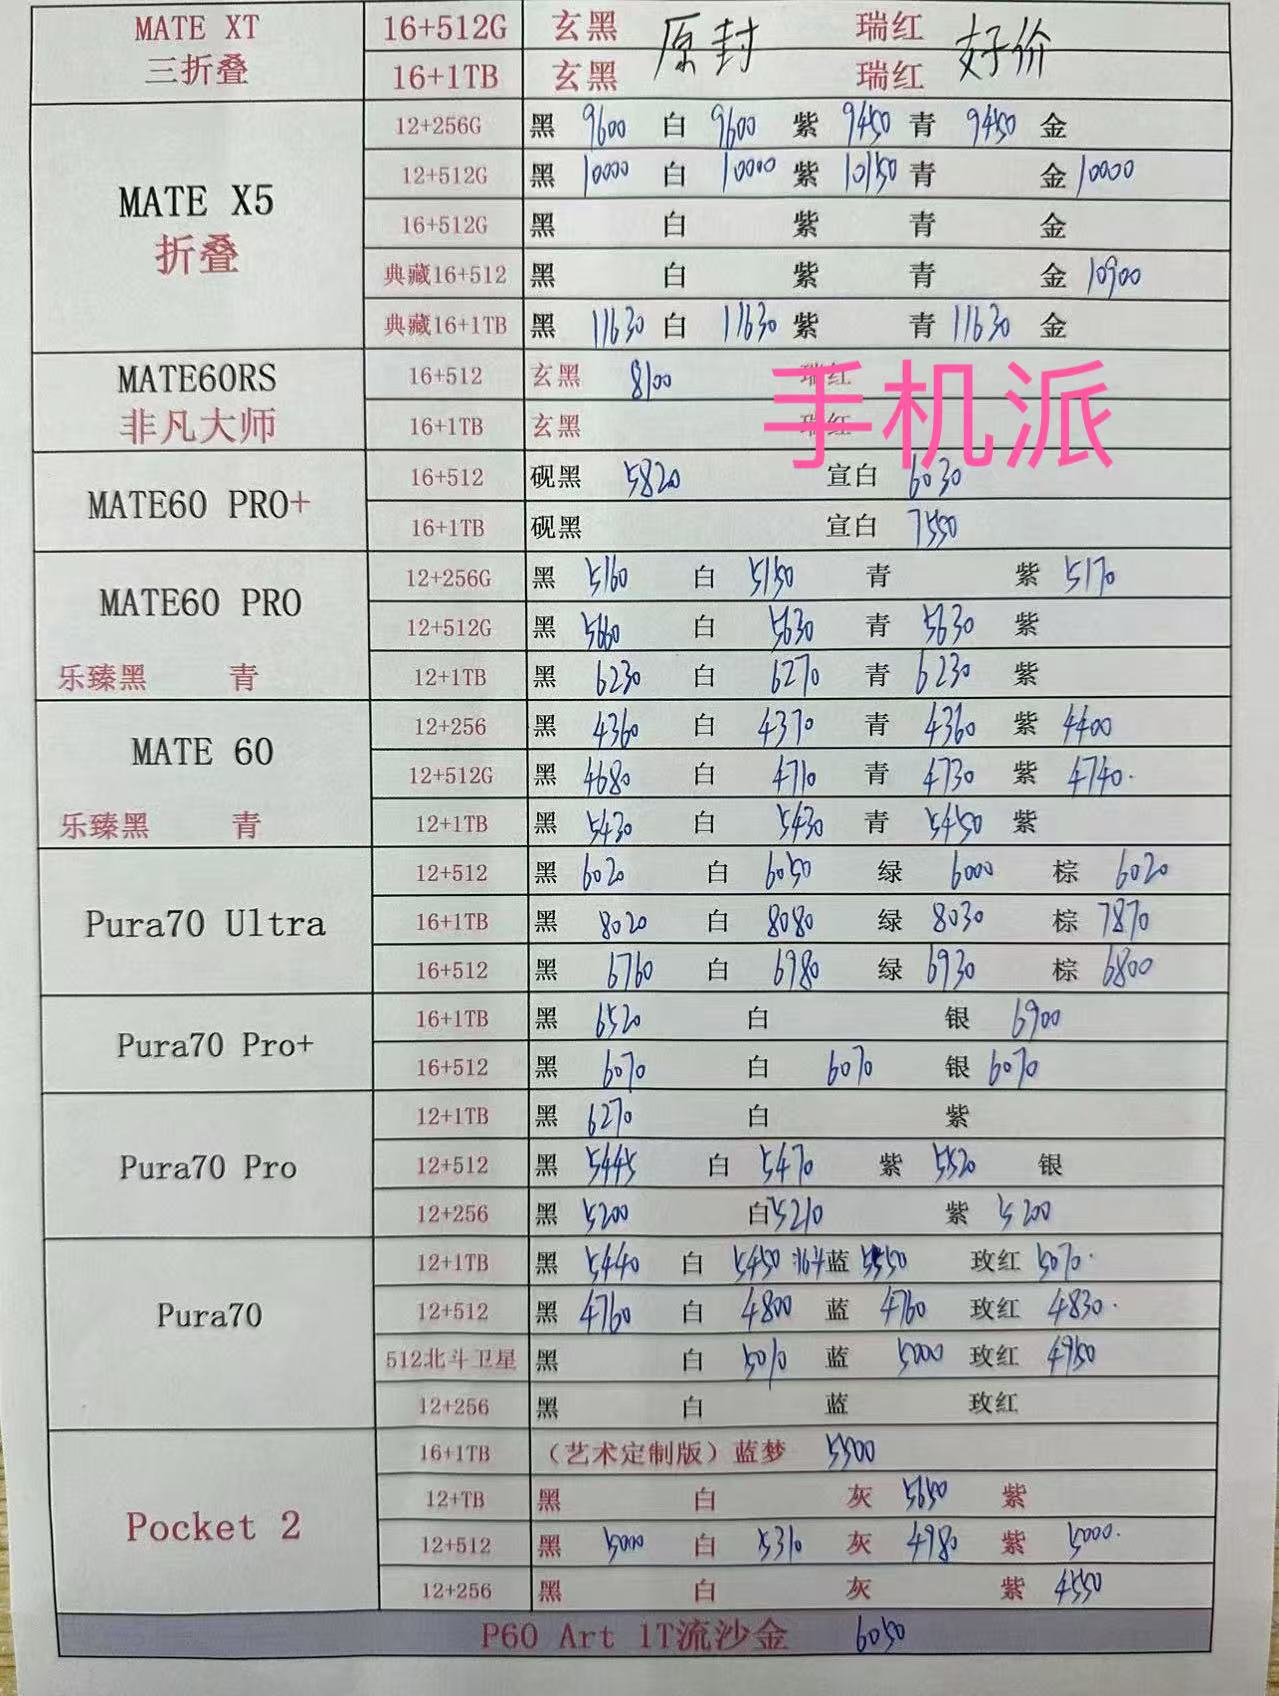 MATE XT 16+512G 玄黑 原封 瑞红 好价
三折叠 16+1TB 玄黑 瑞红
12+256G 黑 9600 白 9600 紫 9450 青 9450 金
MATE X5 12+512G 黑 10000 白 10000 紫 10150 青 金 10000
折叠 16+512G 黑 白 紫 青 金
典藏16+512 黑 白 紫 青 金 10900
典藏16+1TB 黑 11630 白 11630 紫 青 11630 金
手机派
MATE60RS 16+512 玄黑 8100 瑞红
非凡大师 16+1TB 玄黑 瑞红
MATE60 PRO+ 16+512 砚黑 5820 宣白 6030
16+1TB 砚黑 宣白 7550
MATE60 PRO 12+256G 黑 5160 白 5150 青 紫 5170
12+512G 黑 5660 白 5630 青 5630 紫
乐臻黑 青 12+1TB 黑 6230 白 6270 青 6230 紫
MATE 60 12+256 黑 4360 白 4370 青 4360 紫 4400
12+512G 黑 4680 白 4710 青 4730 紫 4740.
乐臻黑 青 12+1TB 黑 5430 白 5430 青 5450 紫
12+512 黑 6020 白 6050 绿 6000 棕 6020
Pura70 Ultra 16+1TB 黑 8020 白 8080 绿 8030 棕 7870
16+512 黑 6760 白 6980 绿 6930 棕 6800
Pura70 Pro+ 16+1TB 黑 6520 白 银 6900
16+512 黑 6070 白 6070 银 6070
12+1TB 黑 6270 白 紫
Pura70 Pro 12+512 黑 5445 白 5470 紫 5520 银
12+256 黑 5200 白 5210 紫 5200
12+1TB 黑 5440 白 5450 蓝 5550 玫红 5070.
Pura70 12+512 黑 4760 白 4800 蓝 4760 玫红 4830.
512北斗卫星 黑 白 5010 蓝 5000 玫红 4950
12+256 黑 白 蓝 玫红
16+1TB (艺术定制版)蓝梦 5500
Pocket 2 12+TB 黑 白 灰 5650 紫
12+512 黑 5000 白 5310 灰 4980 紫 5000.
12+256 黑 白 灰 紫 4550
P60 Art 1T流沙金 6050